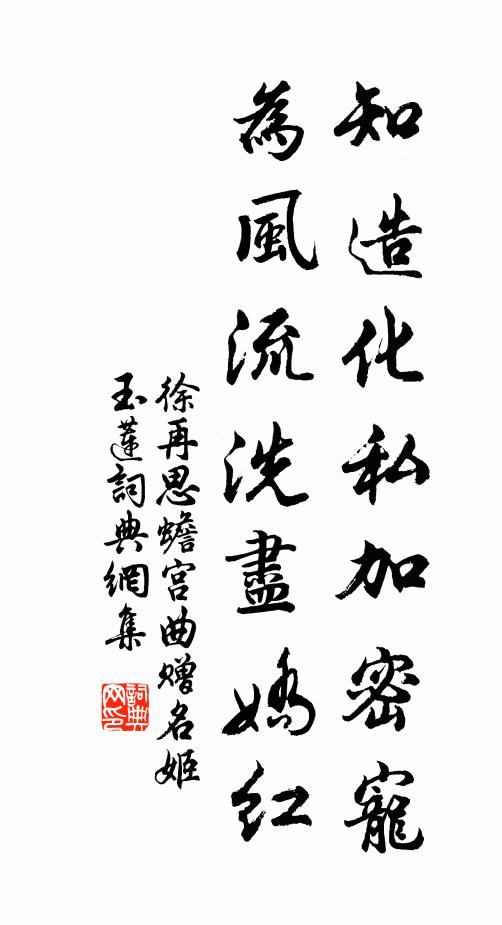 知造化私加密寵
為風流洗盡嬌紅
徐再思蟾宮曲贈名姬
玉蓮詞典網集
詞典
网印